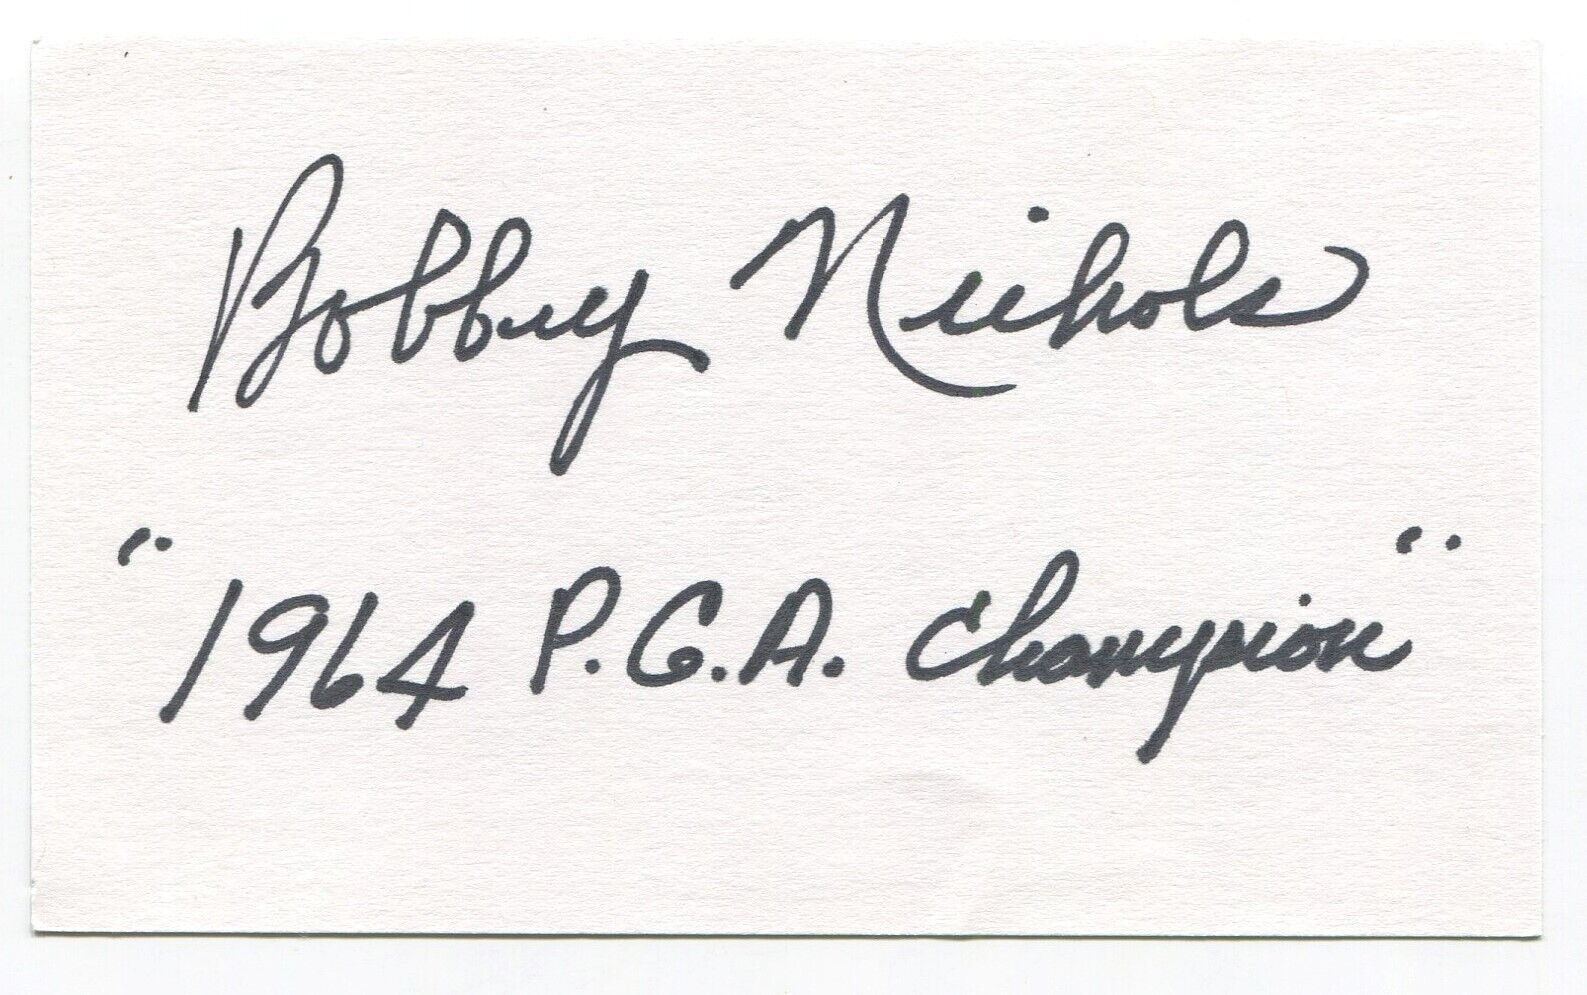 Bobby Nichols
"1964 P.G.A. Champion"